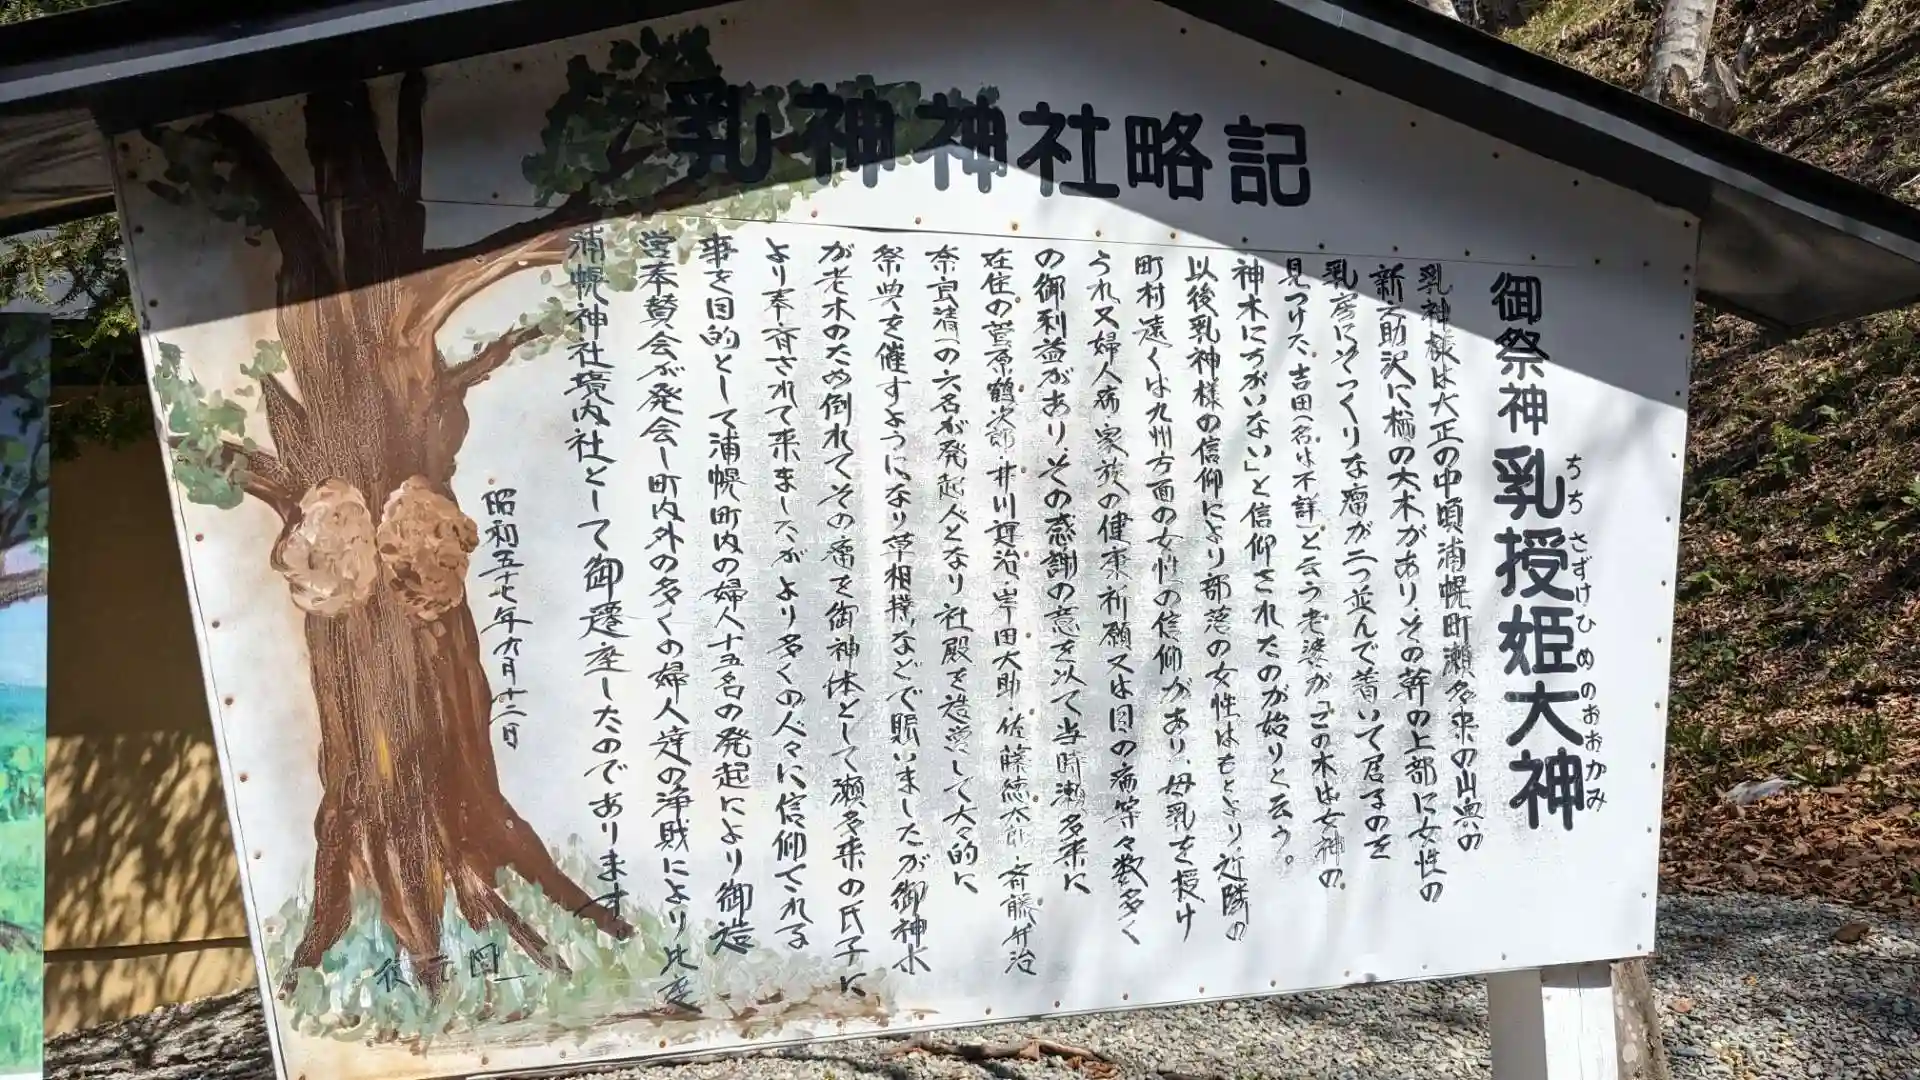 乳神神社略記
御祭神 乳授姫大神
ちち さずけ ひめ のおおかみ
乳神様は大正の中頃浦幌町瀬多来の山奥の
新之助沢に楢の大木があり、その幹の上部に女性の
乳房にそっくりな瘤が二つ並んで着いて居るのを
見つけた、吉田(名は不詳)と云う老婆が「この木は女神の
神木にちがいない」と信仰されたのが始りと云う。
以後乳神様の信仰により部落の女性はもとより、近隣の
町村遠くは九州方面の女性の信仰があり、母乳を授け
られ又婦人病、家族の健康祈願又は目の病等々数多く
の御利益があり、その感謝の意を以て当時瀬多来に
在住の菅原鶴次郎・井川運治・岸田大助・佐藤徳太郎・斉藤弁治
奈良清一の六名が発起人となり社殿を造営して大々的に
祭典を催すようになり草相撲、などで賑いましたが御神木
が老木のため倒れてその瘤を御神体として瀬多来の氏子に
より奉斎されて来ましたがより多くの人々に信仰される
事を目的として浦幌町内の婦人十五名の発起により御造
営奉賛会が発会し町内外の多くの婦人達の浄財により此度
浦幌神社境内社として御遷座したのであります
昭和五十七年九月十二日